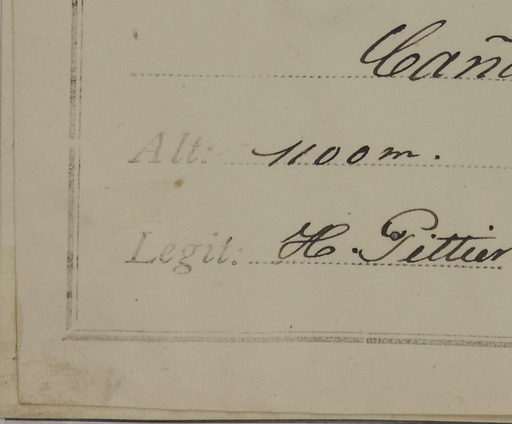 Cañ
Alt: 1100 m.
Legit: H. Pittier